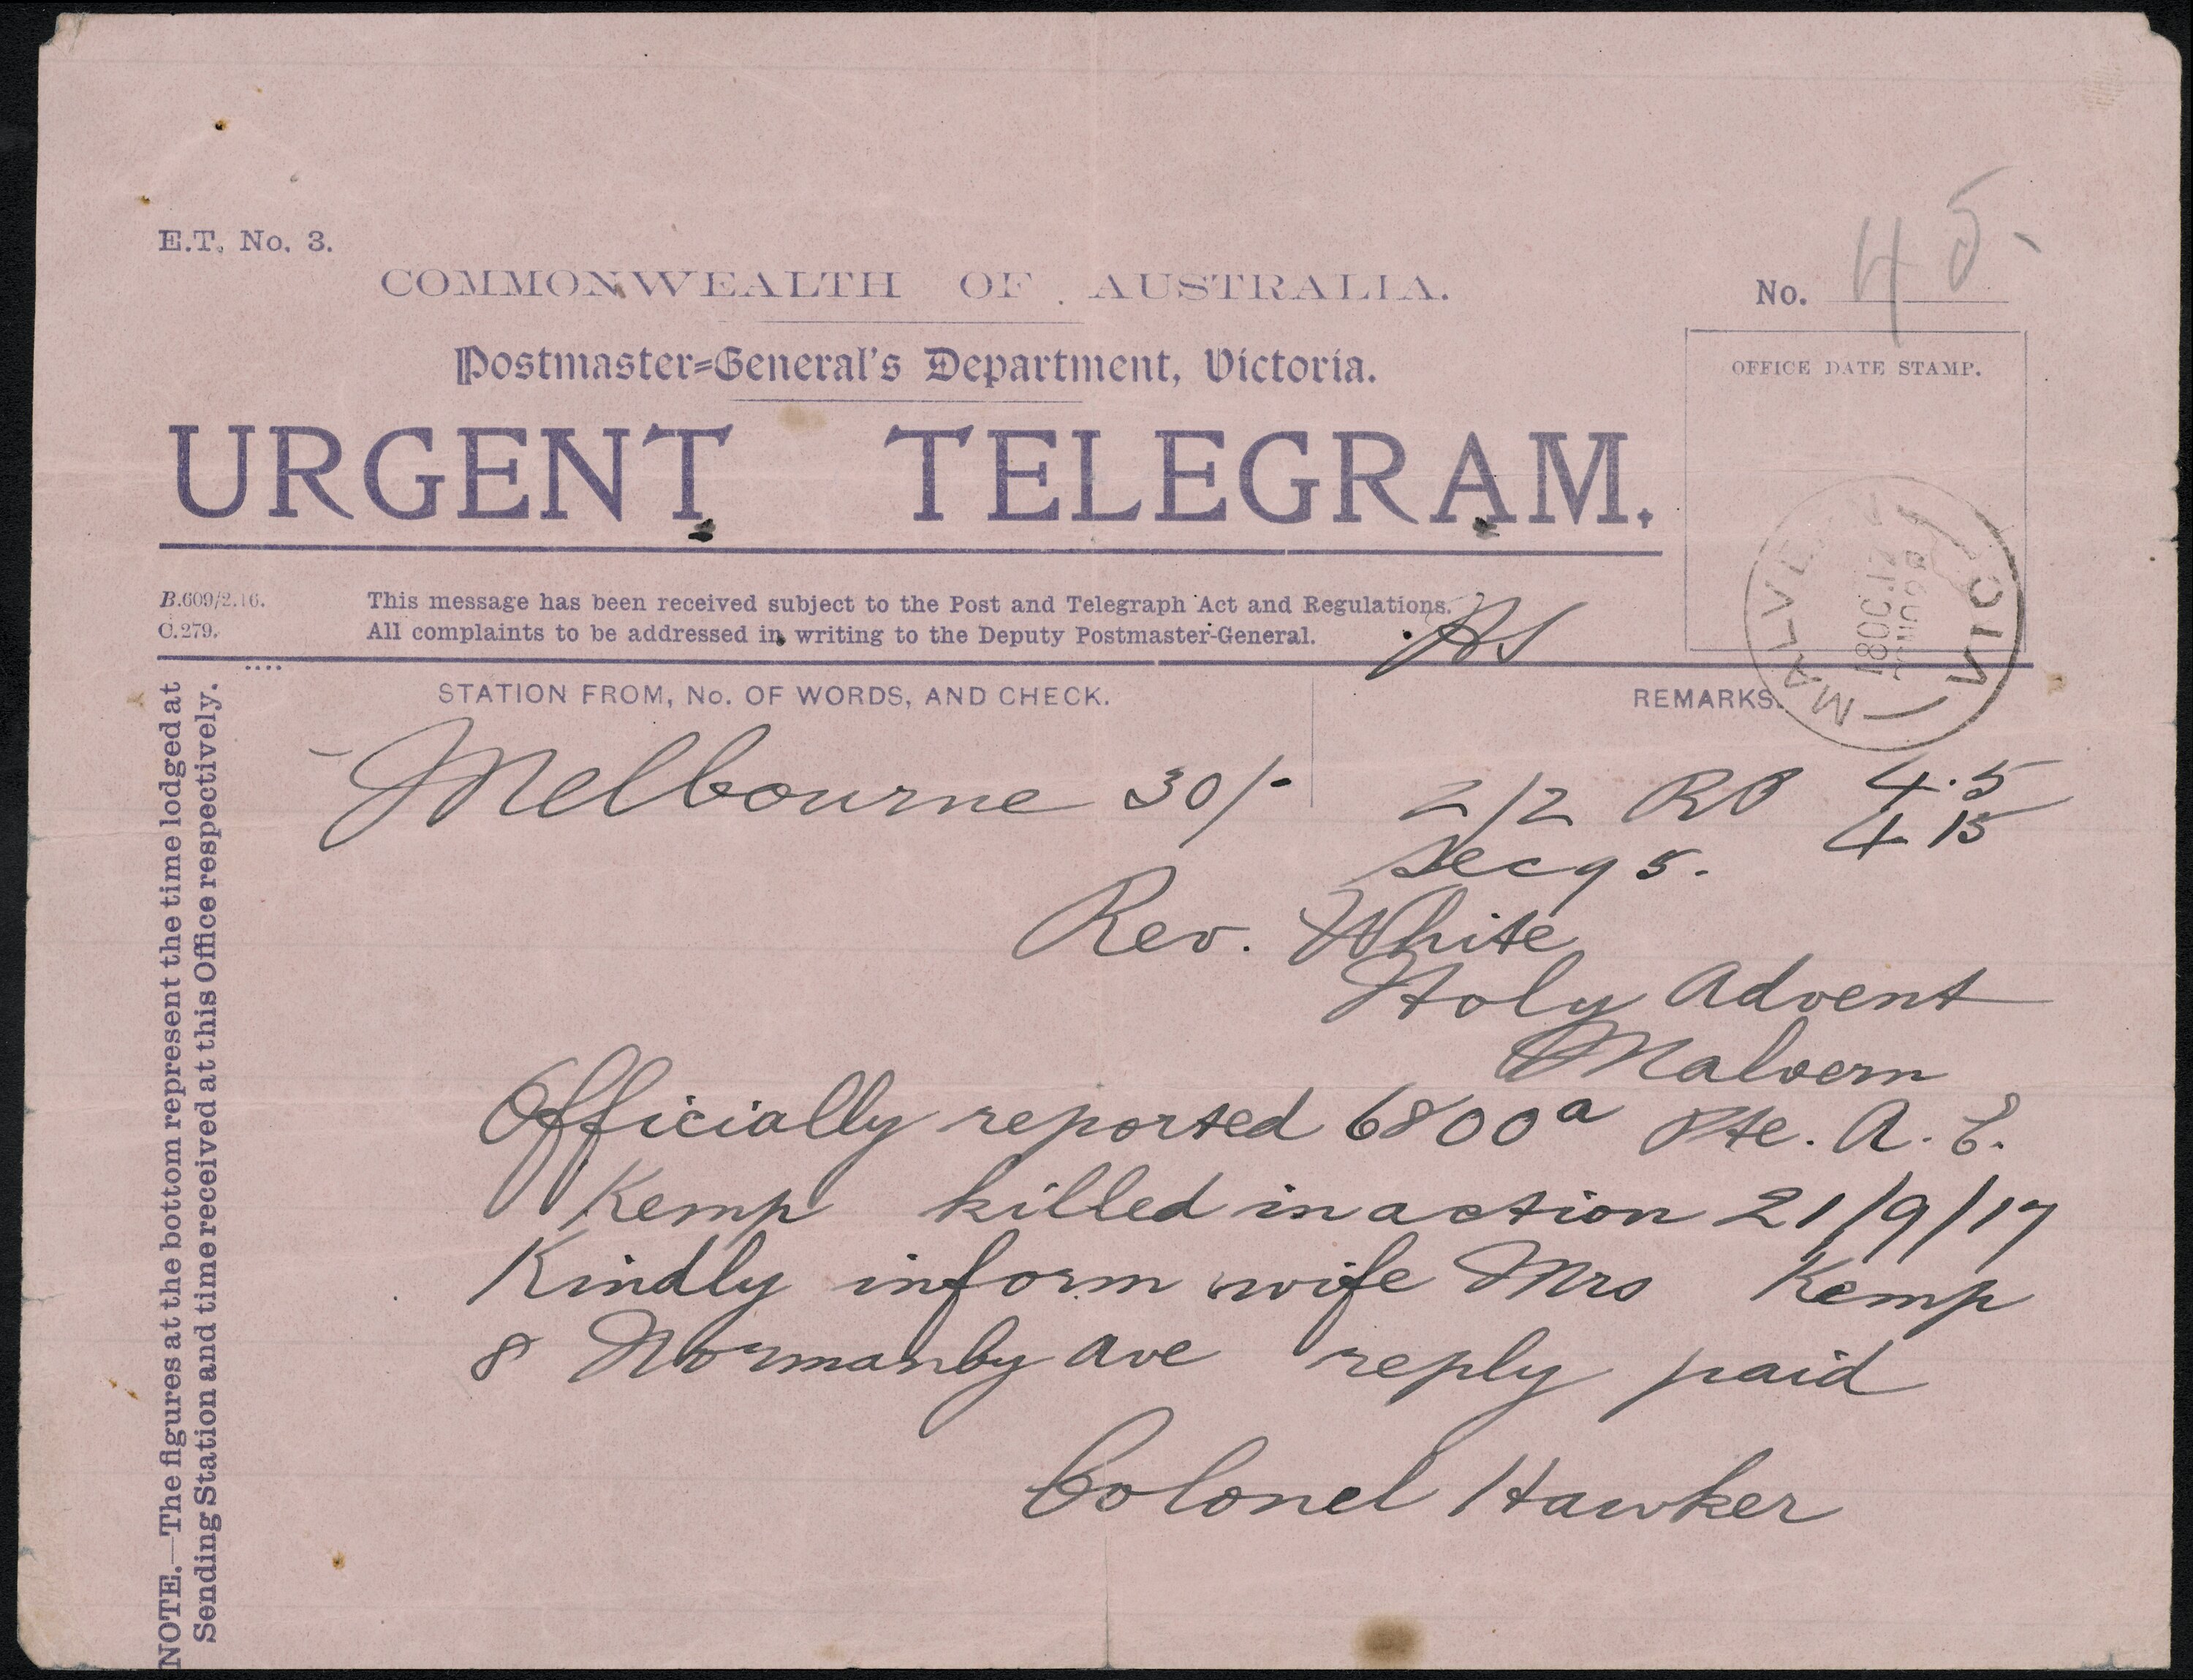 E.T. No. 3.
No. 45.
COMMONWEALTH OF AUSTRALIA.
Postmaster-General's Department, Victoria.
OFFICE DATE STAMP.
URGENT TELEGRAM.
MALVERN
18 OC 17
VIC
B.609/2.16.
C.279.
This message has been received subject to the Post and Telegraph Act and Regulations.
All complaints to be addressed in writing to the Deputy Postmaster-General.
STATION FROM, No. OF WORDS, AND CHECK.
REMARKS.
Melbourne 30/- 2/2 RP 4.5
4 15
Rev. White
Holy Advent
Malvern
Officially reported 6800a Pte. A. E.
Kemp killed in action 21/9/17
Kindly inform wife Mrs Kemp
8 Normanby Ave reply paid
Colonel Hawker
NOTE.—The figures at the bottom represent the time lodged at
Sending Station and time received at this Office respectively.